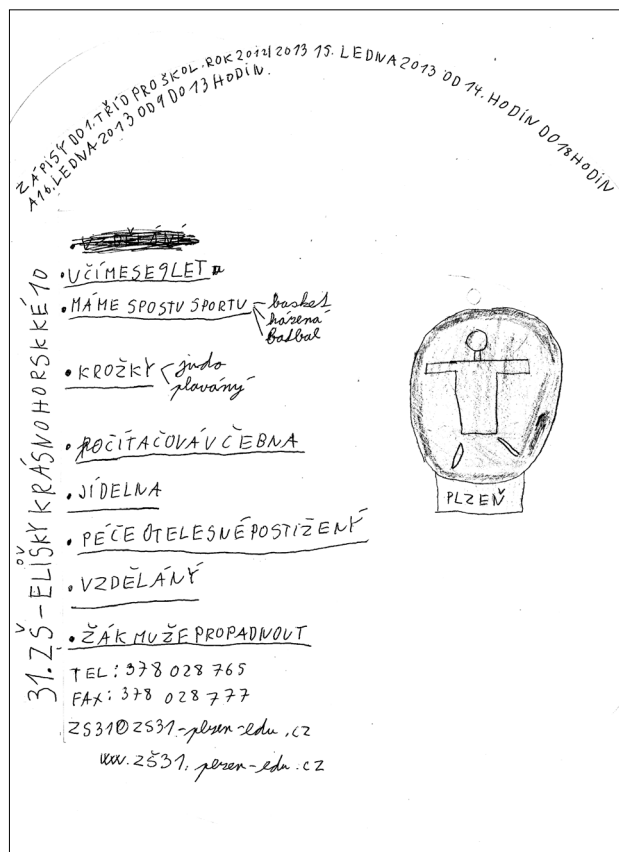 ZÁPISY DO 1. TŘÍD PRO ŠKOL. ROK 2012/2013 15. LEDNA 2013 OD 14. HODIN DO 18 HODIN
A 16. LEDNA 2013 OD 9 DO 13 HODIN.
31. ZŠ - ELIŠKY KRÁSNOHORSKKÉ 10
• UČÍME SE 9 LET
• MÁME SPOSTU SPORTU
basket
házená
fotbal
• KROŽKY
judo
plaváný
• POČÍTAČOVÁ UČEBNA
• JÍDELNA
• PÉČE O TELESNÉ POSTIŽENÝ
• VZDĚLÁNÝ
• ŽÁK MUŽE PROPADNOUT
TEL: 378 028 765
FAX: 378 028 777
ZS31@ZS31.-plzen-edu.cz
www.ZŠ31.plzen-edu.cz
PLZEŇ